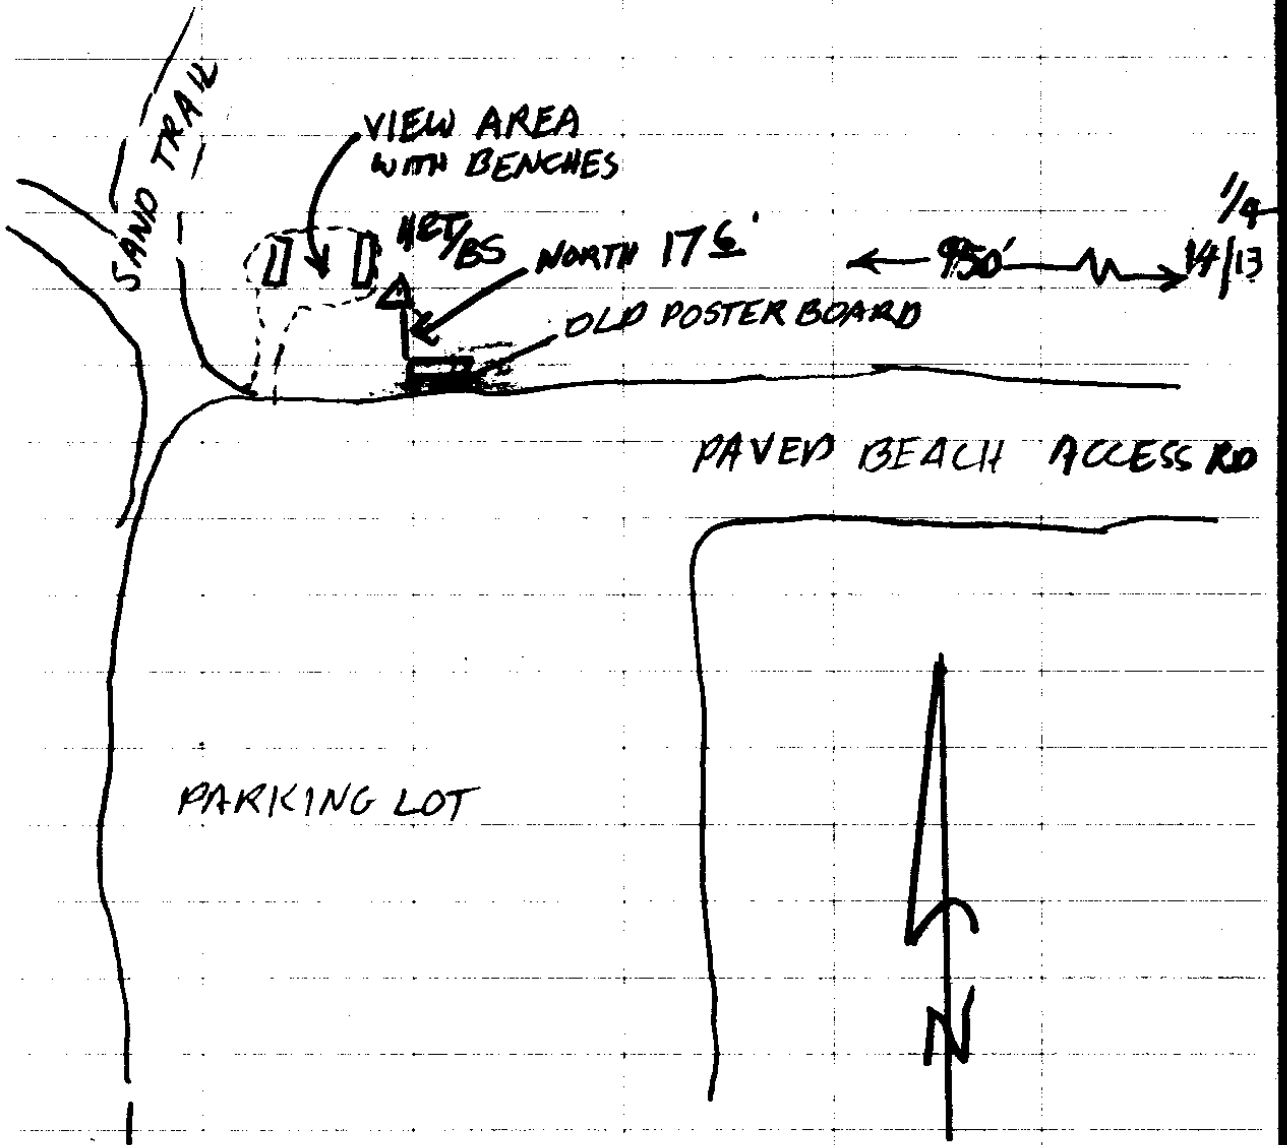 SAND TRAIL
VIEW AREA
WITH BENCHES
NORTH 17 6'
950'
1/4
14/13
OLD POSTER BOARD
PAVED BEACH ACCESS RD
PARKING LOT
N